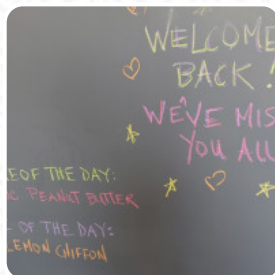 WELCOME
BACK!
WE'VE MIS
YOU ALL
EOF THE DAY:
PEANUT BUTTER
OF THE DAY:
LEMON CHIFFON